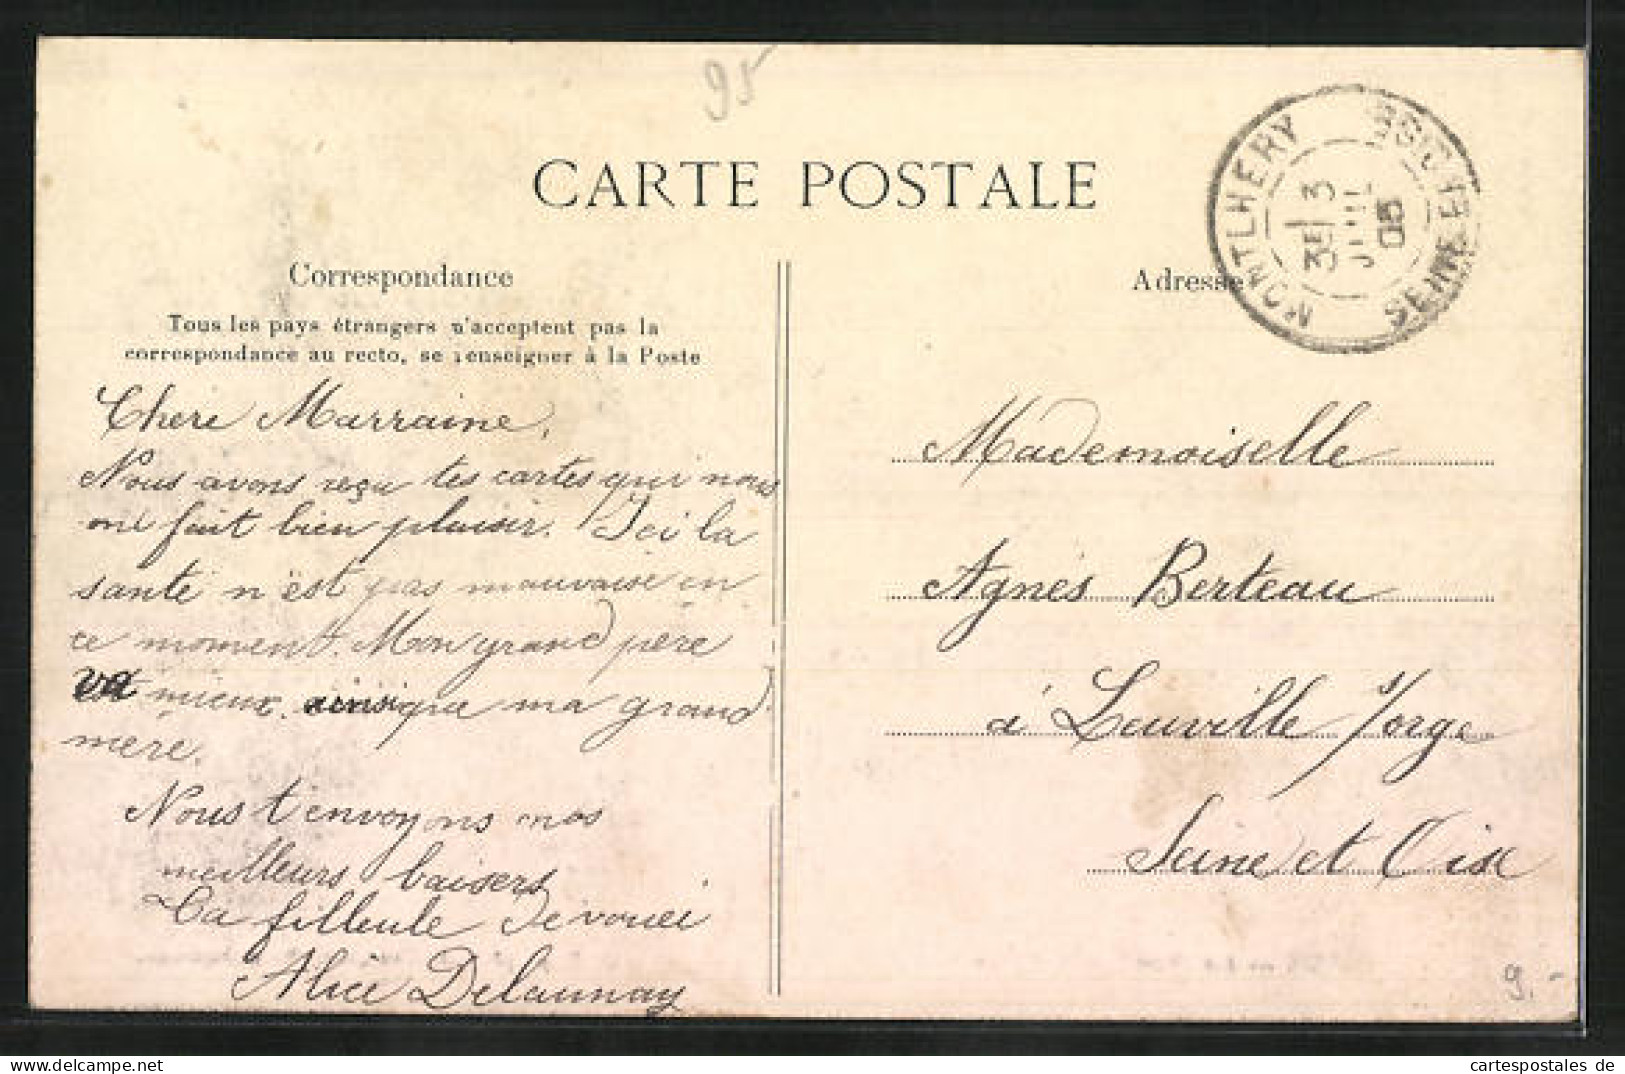 95
CARTE POSTALE
Correspondance
Tous les pays étrangers n'acceptent pas la
correspondance au recto, se renseigner à la Poste
Chère Marraine,
Nous avons reçu tes cartes qui nous
ont fait bien plaisir. Ici la
santé n'est pas mauvaise en
ce moment. Mon grand père
va mieux ainsi que ma grand
mère.
Nous t'envoyons nos
meilleurs baisers
Ta filleule dévouéi
Alice Delaunay
Adresse
MONTLHERY
3E 3
JUIL
05
SEINE ET OISE
Mademoiselle
Agnès Berteau
à Leuville s/orge
Seine et Oise
9.-
cartespostales de